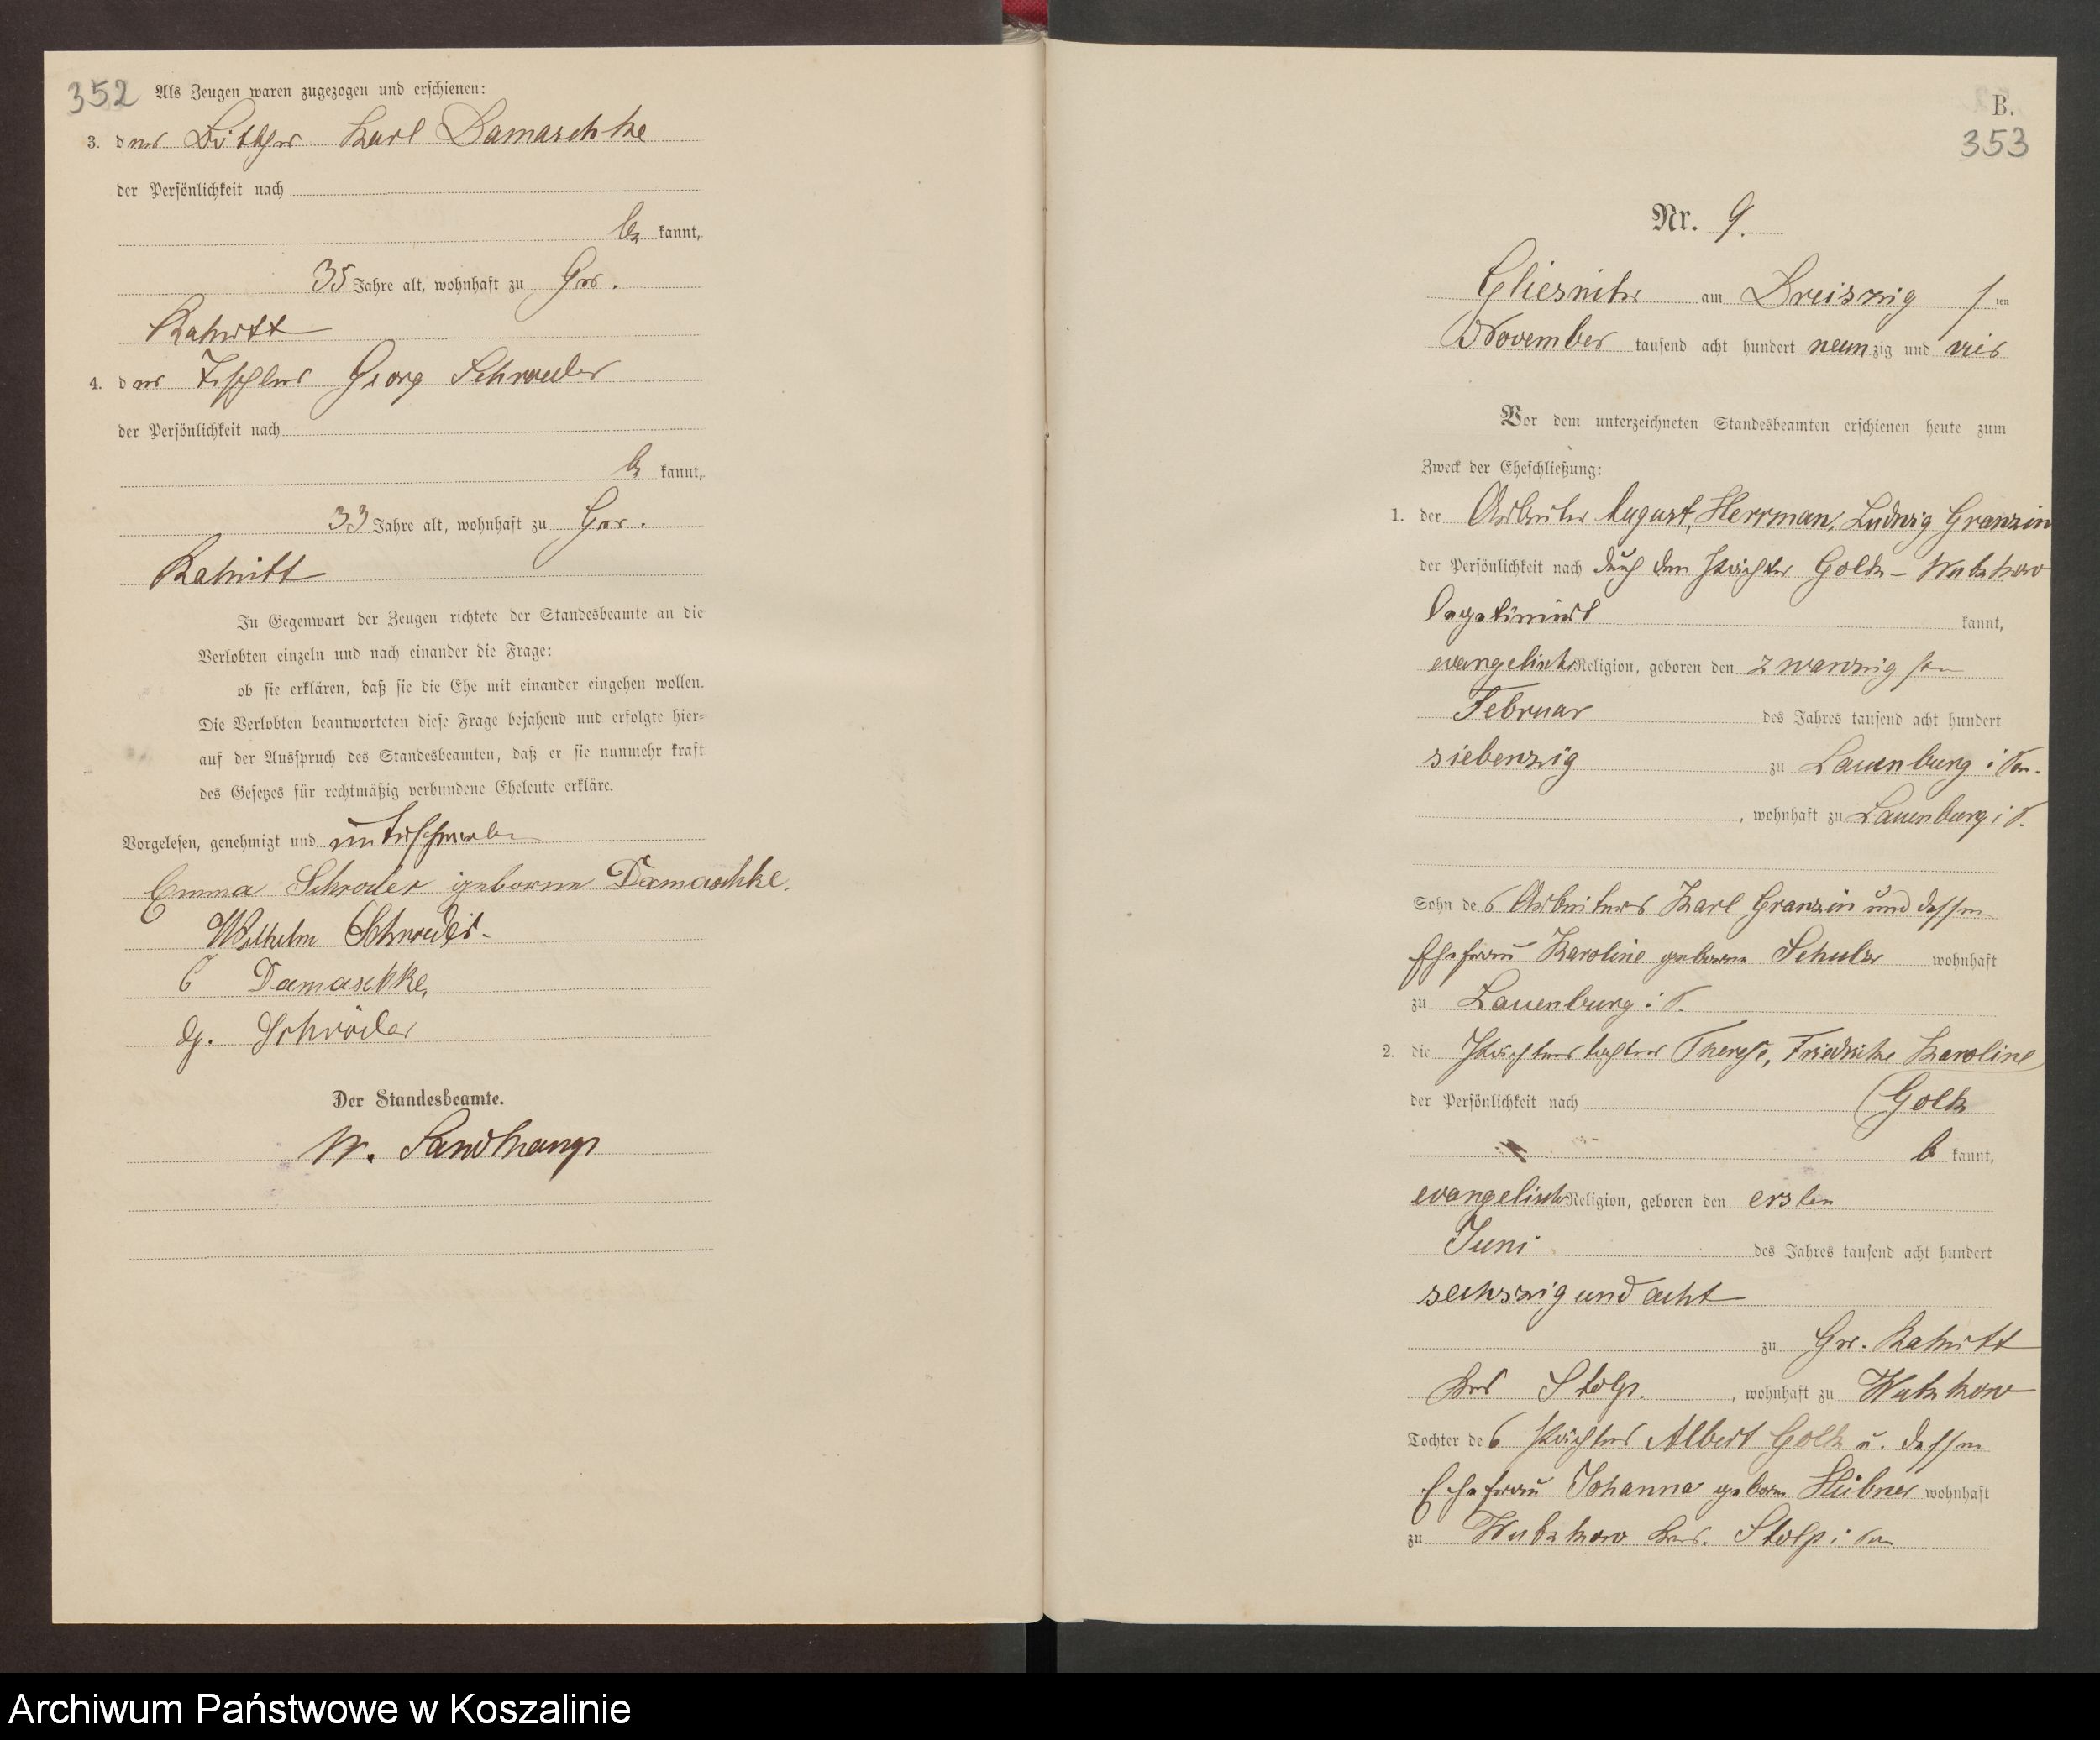 352 Als Zeugen waren zugezogen und erschienen:
3. der Karl Damaschke
der Persönlichkeit nach
be kannt,
35 Jahre alt, wohnhaft zu Gr.
Rakitt
4. der Tischler Georg Schroeder
der Persönlichkeit nach
be kannt,
33 Jahre alt, wohnhaft zu Gr.
Rakitt
In Gegenwart der Zeugen richtete der Standesbeamte an die
Verlobten einzeln und nach einander die Frage:
ob sie erklären, daß sie die Ehe mit einander eingehen wollen.
Die Verlobten beantworteten diese Frage bejahend und erfolgte hier-
auf der Ausspruch des Standesbeamten, daß er sie nunmehr kraft
des Gesetzes für rechtmäßig verbundene Eheleute erkläre.
Vorgelesen, genehmigt und unterschrieben
Emma Schroder geborene Damaschke.
Wilhelm Schroeder.
C Damaschke,
G. Schröder
Der Standesbeamte.
W.
B.
353
Nr. 9.
am Dreiszig sten
November tausend acht hundert neunzig und vier
Vor dem unterzeichneten Standesbeamten erschienen heute zum
Zweck der Eheschließung:
1. der Arbeiter August, Herrman, Ludwig Granzin
der Persönlichkeit nach durch den Pächter Goltz - Wutzkow
legetimirt kannt,
evangelischer Religion, geboren den zwanzigsten
Februar des Jahres tausend acht hundert
siebenzig zu Lauenburg i Pom.
, wohnhaft zu Lauenburg i P.
Sohn des Arbeiters Karl Granzin und dessen
Ehefrau Karoline geborene wohnhaft
zu Lauenburg i P.
2. die Pächterstochter Therese, Friedrike Karoline
der Persönlichkeit nach (Goltz
be kannt,
evangelischer Religion, geboren den ersten
Juni des Jahres tausend acht hundert
sechszig und acht
zu Gr. Rakitt
Krs Stolp. , wohnhaft zu Wutzkow
Tochter des Pächters Albert Goltz u. dessen
Ehefrau Johanna geborne Hübner wohnhaft
zu Wutzkow Krs. Stolp i Pom
Archiwum Państwowe w Koszalinie